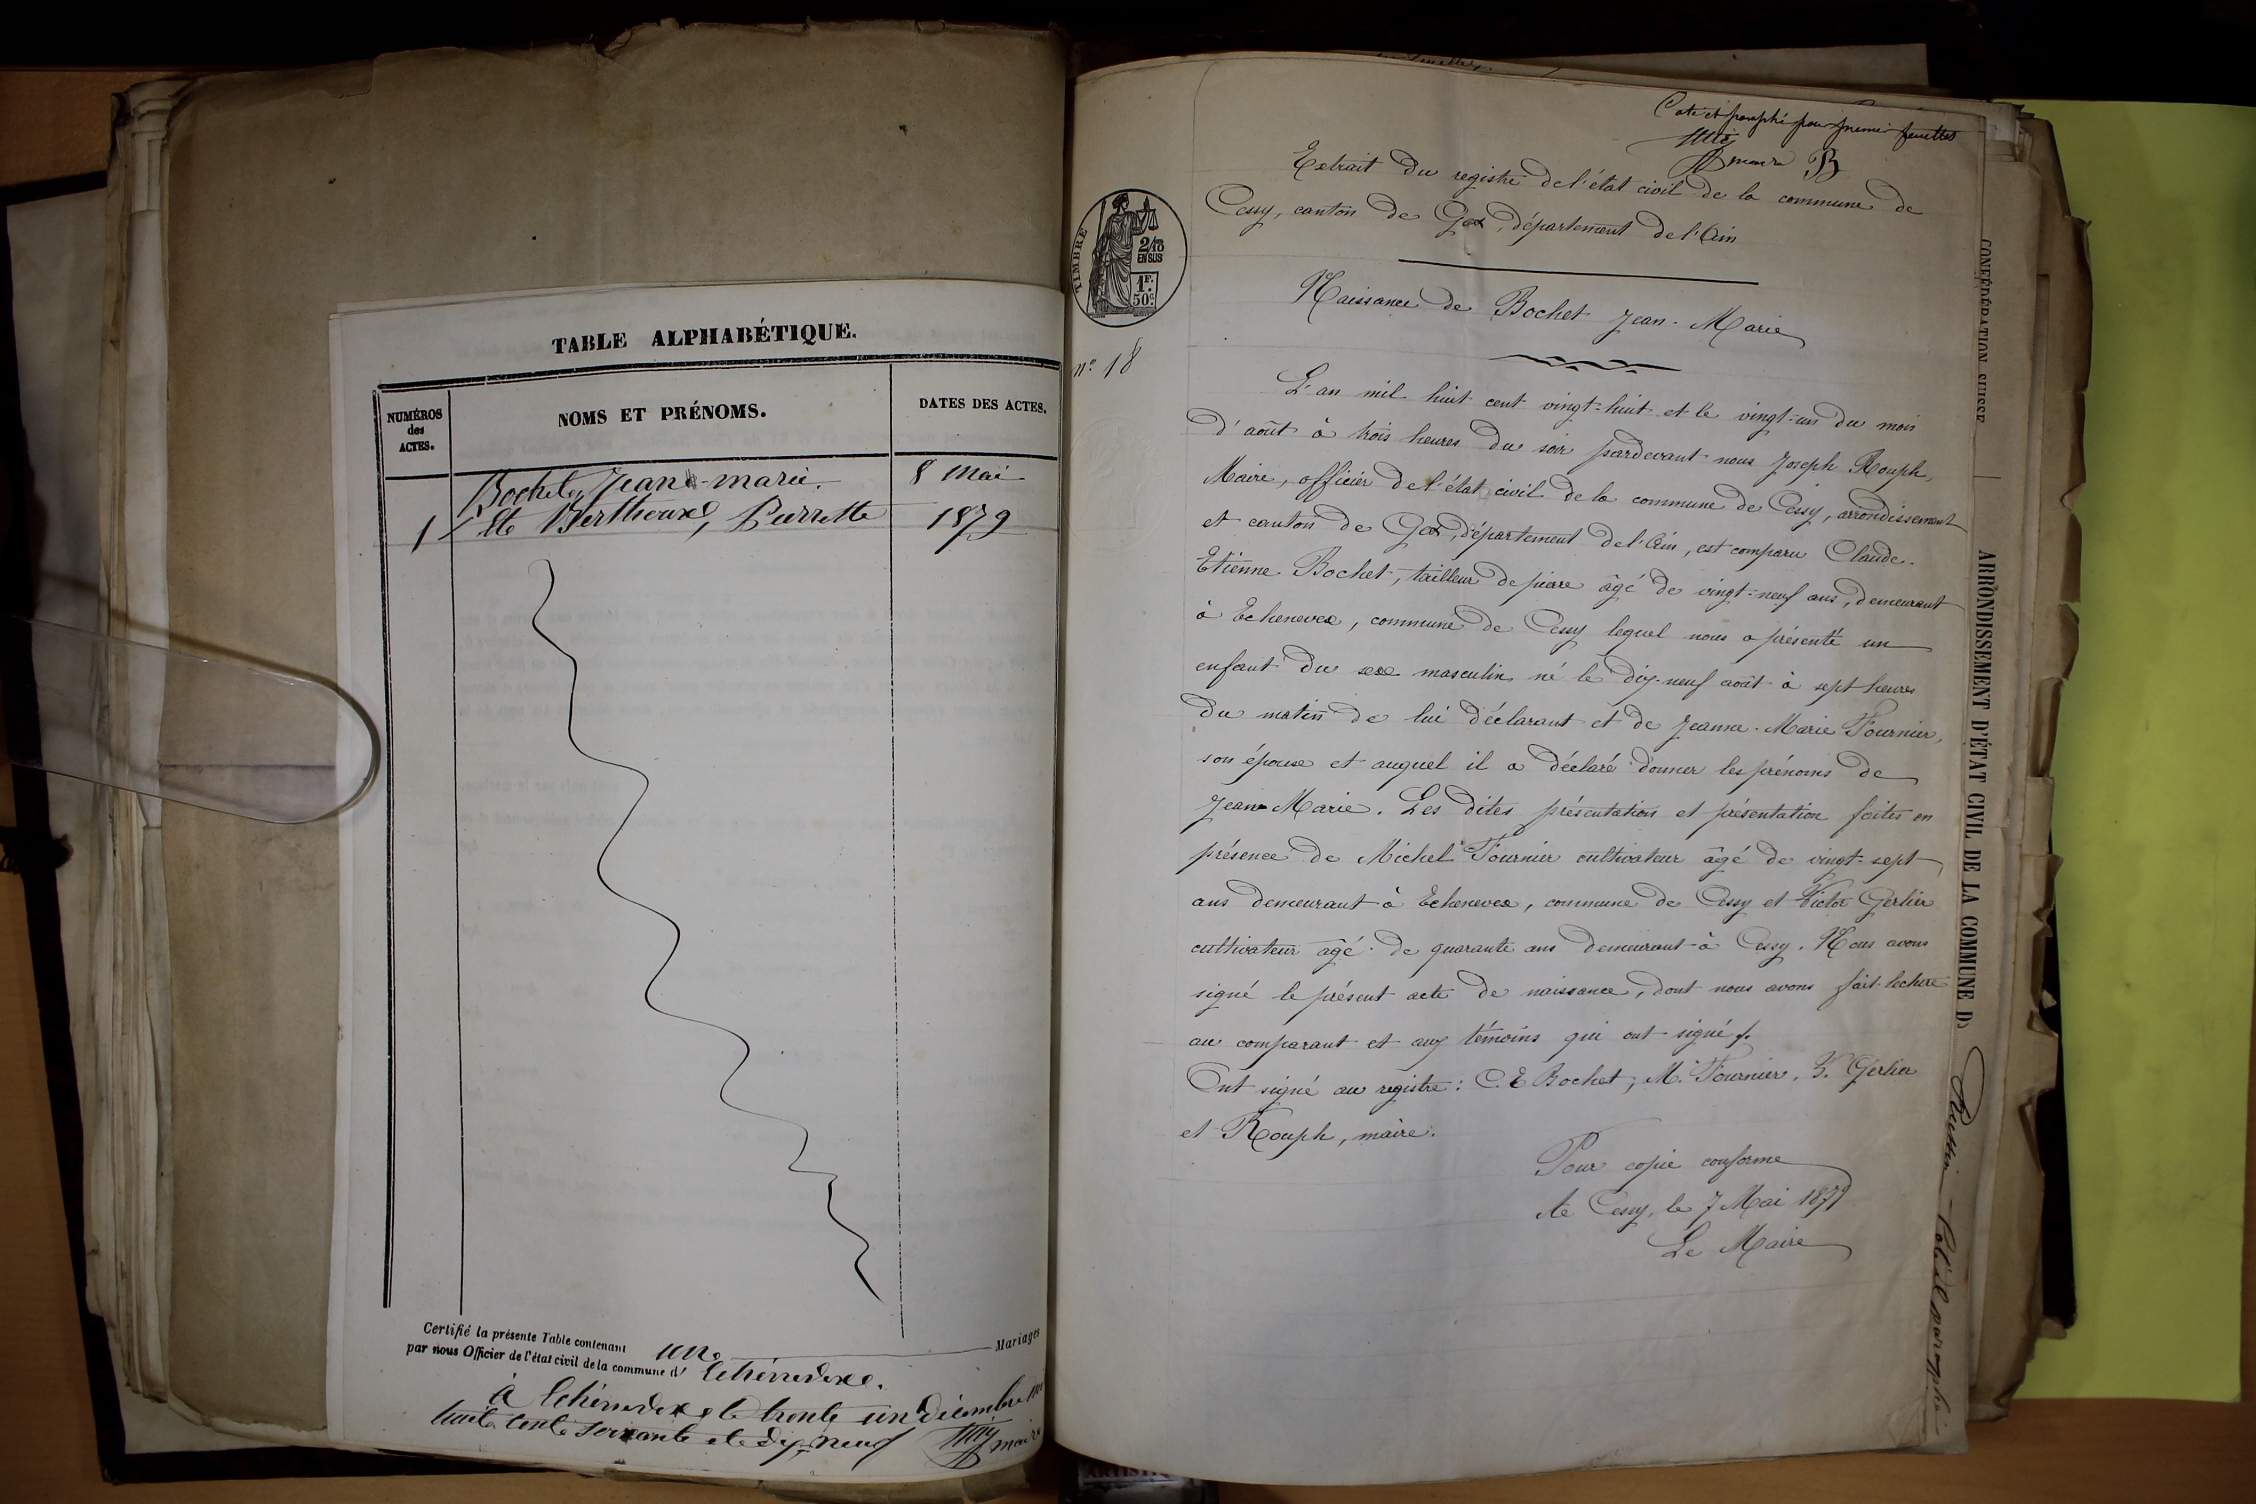 TABLE ALPHABÉTIQUE.
NUMÉROS
des
ACTES.
NOMS ET PRÉNOMS.
DATES DES ACTES.
Bochet, Jean-marie.
8 Mai
1
et Berthoux, Perrette
1879
Certifié la présente Table contenant une Mariages
par nous Officier de l'état civil de la commune d' Echenevex.
à Echenevex le trente un Décembre mil
huit cent soixante et dix neuf
maire
Coté et paraphé pour premier feuillet
TIMBRE
2/10
EN SUS
1F.
50c.
n° 18
Extrait du registre de l'état civil de la commune de
Cessy, canton de Gex, département de l'Ain
Naissance de Bochet Jean-Marie
L'an mil huit cent vingt-huit et le vingt-un du mois
d'août à trois heures du soir pardevant nous Joseph Rouph,
Maire, officier de l'état civil de la commune de Cessy, arrondissement
et canton de Gex, département de l'Ain, est comparu Claude-
Etienne Bochet, tailleur de pierre âgé de vingt-neuf ans, demeurant
à Echenevex, commune de Cessy lequel nous a présenté un
enfant du sexe masculin né le dix-neuf août à sept heures
du matin de lui déclarant et de Jeanne-Marie Fournier,
son épouse et auquel il a déclaré donner les prénoms de
Jean-Marie. Les dites présentation et présentation faites en
présence de Michel Fournier cultivateur âgé de vingt-sept
ans demeurant à Echenevex, commune de Cessy et Victor Gerlier
cultivateur âgé de quarante ans demeurant à Cessy. Nous avons
signé le présent acte de naissance, dont nous avons fait lecture
au comparant et aux témoins qui ont signé.
Ont signé au registre: C. E Bochet, M. Fournier, V. Gerlier
et Rouph, maire.
Pour copie conforme
de Cessy, le 7 Mai 1879
Le Maire
CONFÉDÉRATION SUISSE
ARRONDISSEMENT D'ÉTAT CIVIL DE LA COMMUNE D